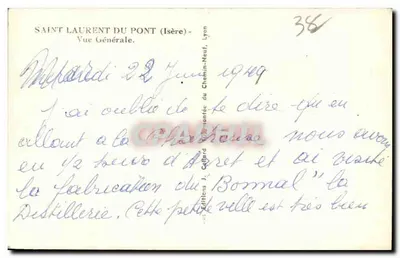 SAINT LAURENT DU PONT (Isère) -
Vue Générale.
38
Mercredi 22 Juin 1949
J'ai oublié de te dire qu'en
allant a la Chartreuse nous avons
eu 1/2 heure d'Arret et ai visité
la fabrication du Bonnal" la
Distillerie. Cette petite ville est très bien
Editions J. Cellard
montée du Chemin-Neuf, Lyon